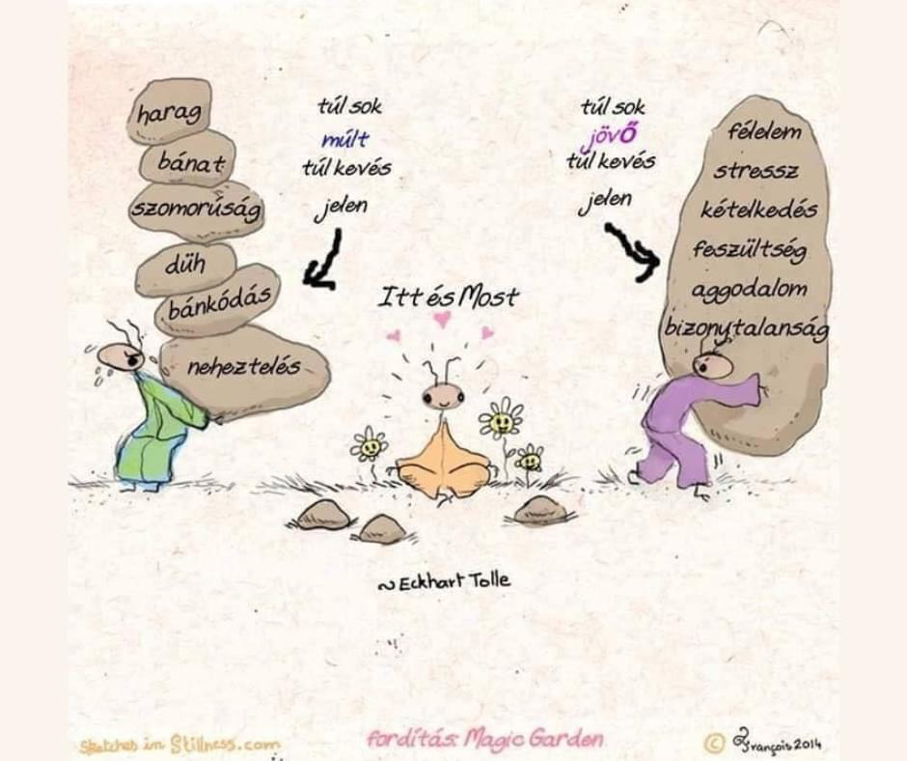 harag
bánat
szomorúság
düh
bánkódás
neheztelés
túl sok
múlt
túl kevés
jelen
Itt és Most
túl sok
jövő
túl kevés
jelen
félelem
stressz
kételkedés
feszültség
aggodalom
bizonytalanság
~ Eckhart Tolle
Sketches in Stillness.com
fordítás: Magic Garden
© François 2014